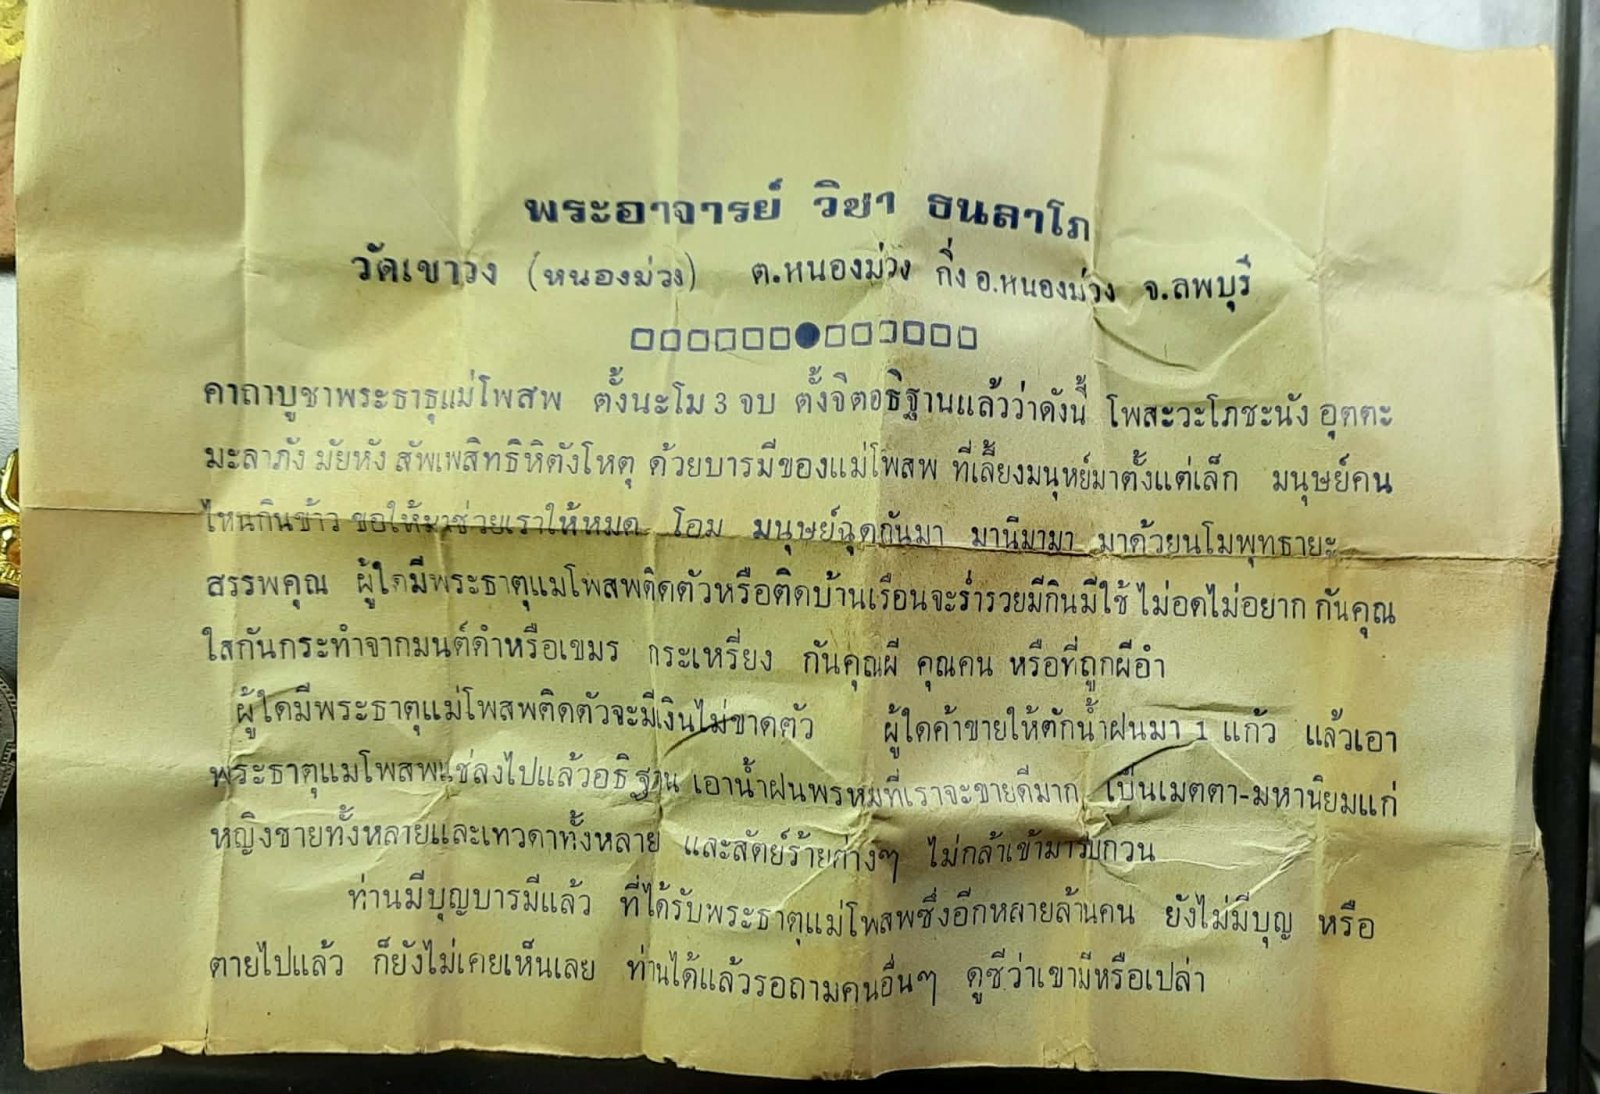 พระอาจารย์ วิชา ธนลาโภ
วัดเขาวง (หนองม่วง) ต.หนองม่วง กิ่ง อ.หนองม่วง จ.ลพบุรี
คาถาบูชาพระธาตุแม่โพสพ ตั้งนะโม 3 จบ ตั้งจิตอธิฐานแล้วว่าดังนี้ โพสะวะโภชะนัง อุตตะ
มะลาภัง มัยหัง สัพเพสิทธิหิตังโหตุ ด้วยบารมีของแม่โพสพ ที่เลี้ยงมนุหย์มาตั้งแต่เล็ก มนุษย์คน
ไหนกินข้าว ขอให้มาช่วยเราให้หมด โอม มนุษย์ฉุดกันมา มานีมามา มาด้วยนโมพุทธายะ
สรรพคุณ ผู้ใดมีพระธาตุแมโพสพติดตัวหรือติดบ้านเรือนจะร่ำรวยมีกินมีใช้ ไม่อดไม่อยาก กันคุณ
ใสกันกระทำจากมนต์ดำหรือเขมร กระเหรี่ยง กันคุณผี คุณคน หรือที่ถูกผีอำ
ผู้ใดมีพระธาตุแม่โพสพติดตัวจะมีเงินไม่ขาดตัว ผู้ใดค้าขายให้ตักน้ำฝนมา 1 แก้ว แล้วเอา
พระธาตุแมโพสพแช่ลงไปแล้วอธิฐาน เอาน้ำฝนพรหมที่เราจะขายดีมาก เป็นเมตตา-มหานิยมแก่
หญิงชายทั้งหลายและเทวดาทั้งหลาย และสัตย์ร้ายต่างๆ ไม่กล้าเข้ามารบกวน
ท่านมีบุญบารมีแล้ว ที่ได้รับพระธาตุแม่โพสพซึ่งอีกหลายล้านคน ยังไม่มีบุญ หรือ
ตายไปแล้ว ก็ยังไม่เคยเห็นเลย ท่านได้แล้วรอถามคนอื่นๆ ดูซีว่าเขามีหรือเปล่า